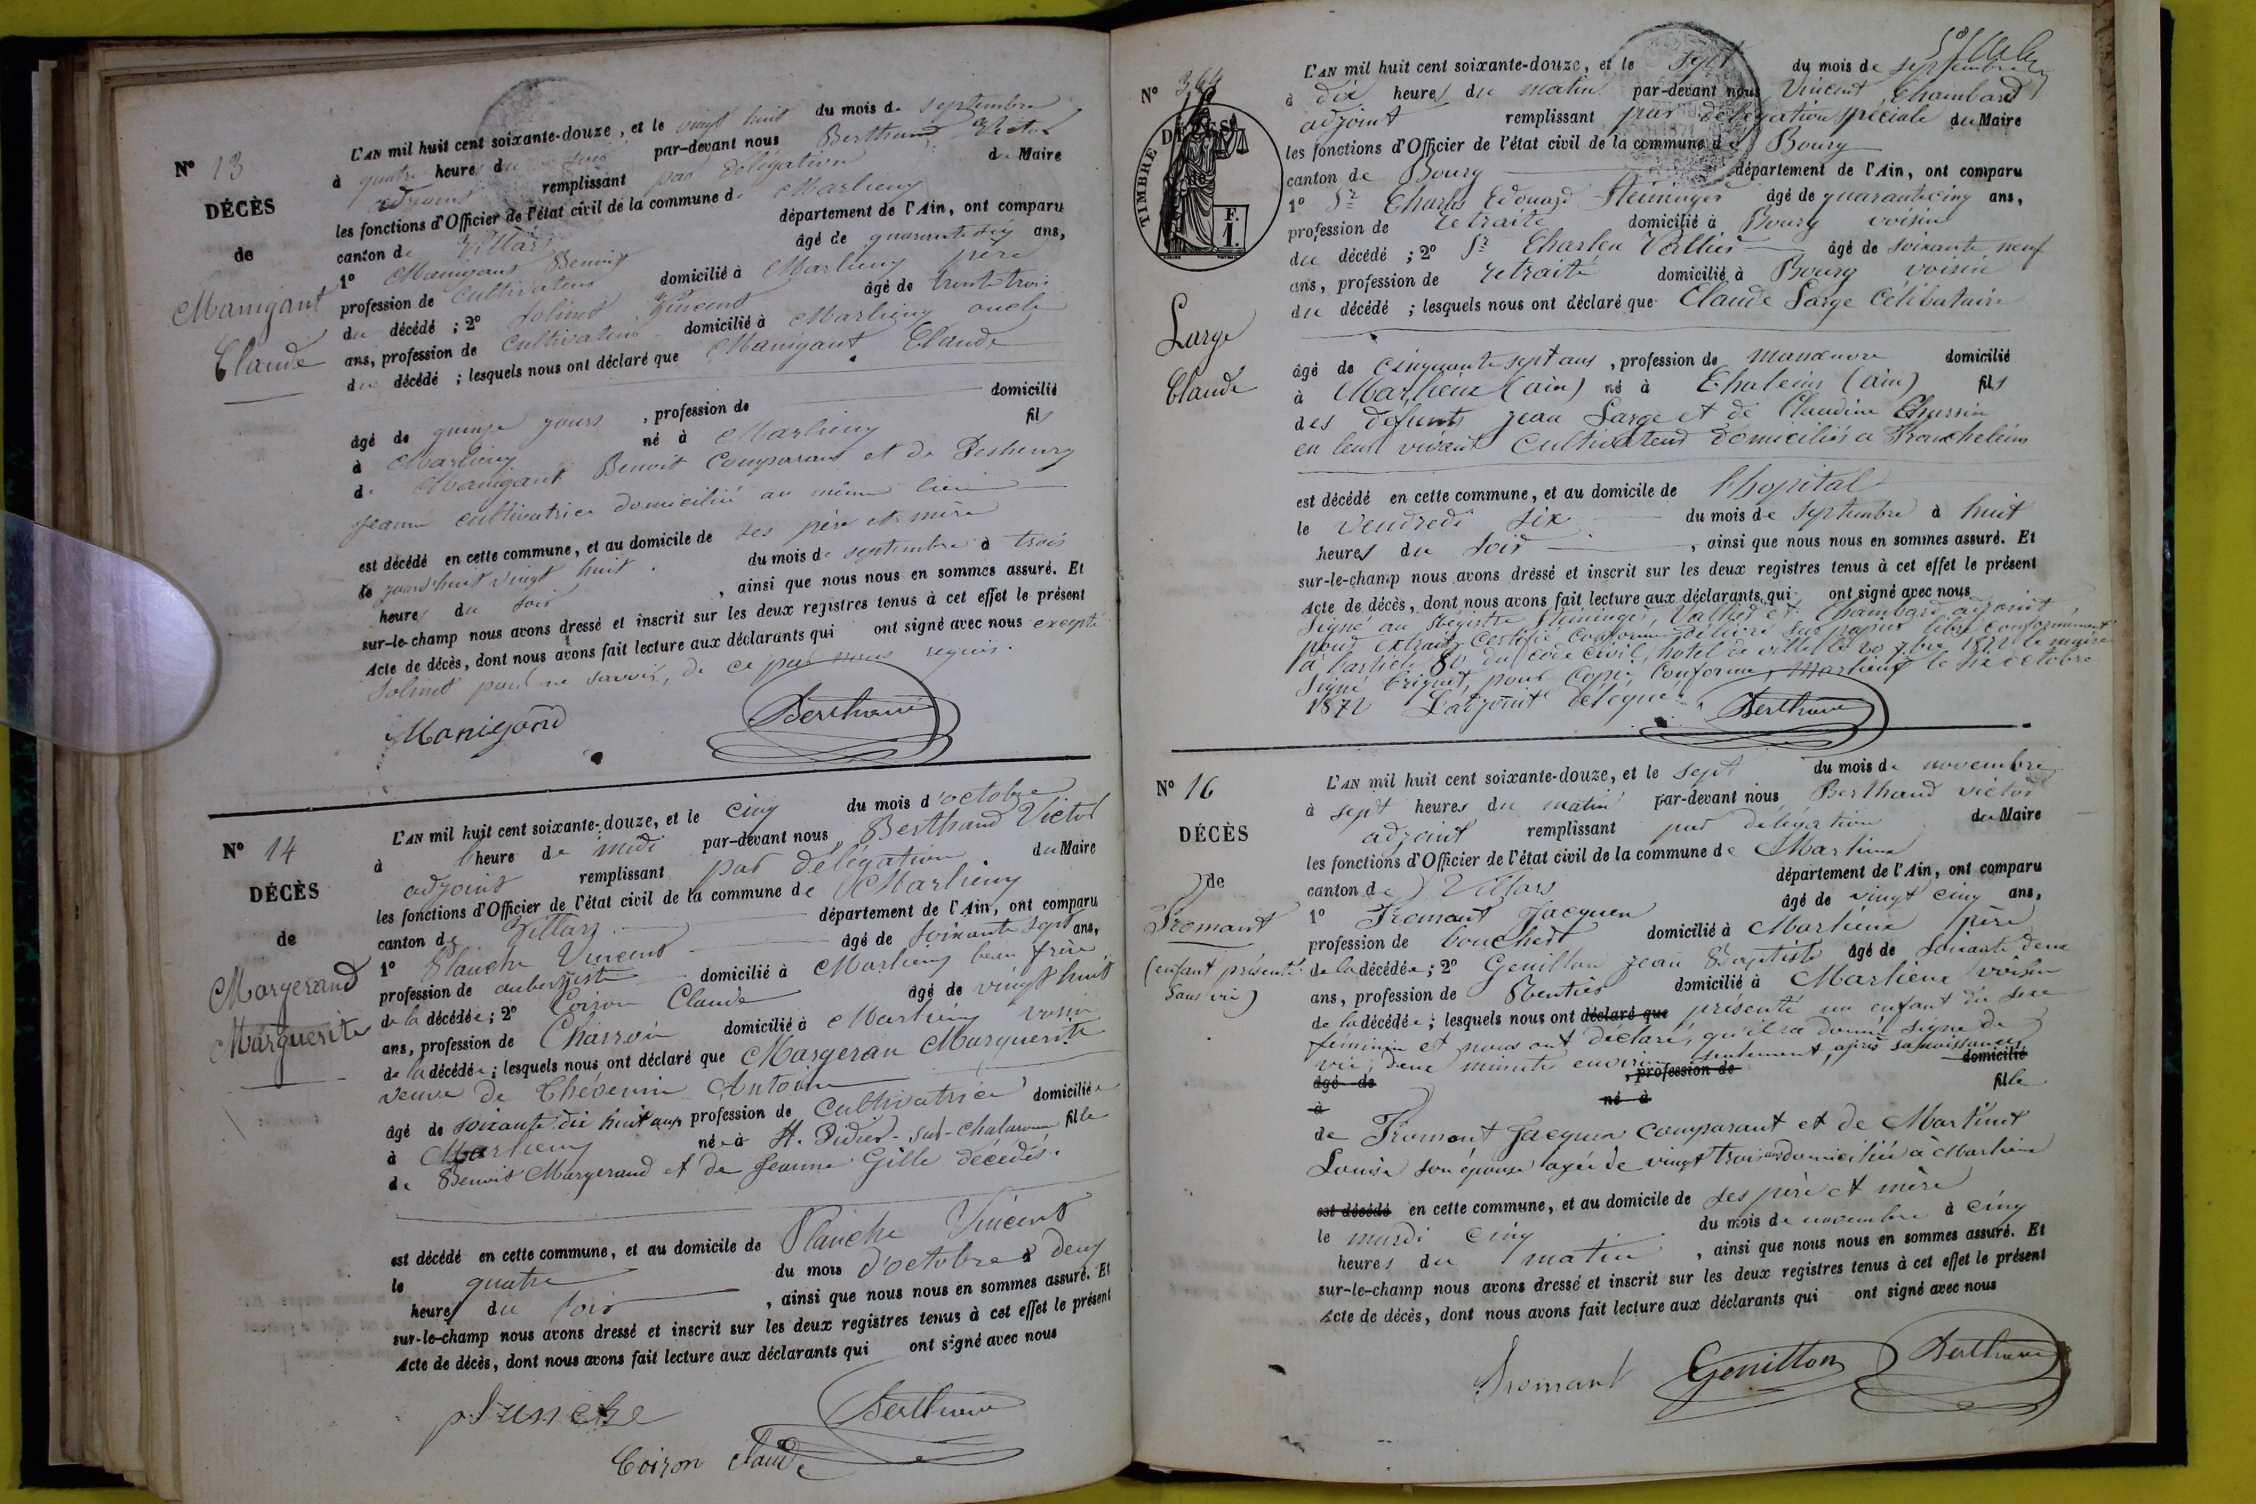 N° 13
DÉCÈS
de
Manigant
Claude
L'AN mil huit cent soixante-douze, et le vingt huit du mois de septembre
à quatre heures du soir par-devant nous Berthand Victor
adjoint remplissant par délégation du Maire
les fonctions d'Officier de l'état civil de la commune de Marlieux
canton de Villars département de l'Ain, ont comparu
1° Manigant Benoit âgé de quarante six ans,
profession de cultivateur domicilié à Marlieux père
du décédé ; 2° Solinet Vincent âgé de trente trois
ans, profession de cultivateur domicilié à Marlieux oncle
du décédé ; lesquels nous ont déclaré que Manigant Claude
âgé de quinze jours , profession de domicilié
à Marlieux né à Marlieux fils
de Manigant Benoit comparant et de
Jeanne cultivatrice domiciliée au même lieu
est décédé en cette commune, et au domicile de ses père et mère
le jourd'huit vingt huit du mois de septembre à trois
heures du soir , ainsi que nous nous en sommes assuré. Et
sur-le-champ nous avons dressé et inscrit sur les deux registres tenus à cet effet le présent
Acte de décès, dont nous avons fait lecture aux déclarants qui ont signé avec nous excepté
Solinet pour ne savoir, de ce par nous requis.
Manigand Berthand
N° 14
DÉCÈS
de
Margerand
Marguerite
L'AN mil huit cent soixante-douze, et le cinq du mois d'octobre
à l'heure de midi par-devant nous Berthand Victor
adjoint remplissant par délégation du Maire
les fonctions d'Officier de l'état civil de la commune de Marlieux
canton de Villars département de l'Ain, ont comparu
1° Planche Vincent âgé de soixante sept ans,
profession de aubergiste domicilié à Marlieux beau frère
de la décédée ; 2° Coizon Claude âgé de vingt huit
ans, profession de Charron domicilié à Marlieux voisin
de la décédée ; lesquels nous ont déclaré que Margeran Marguerite
veuve de Thévenin Antoine
âgé de soixante dix huit ans profession de cultivatrice domiciliée
à Marlieux née à St. Didier-sur-Chalaronne fille
de Benoit Margerand et de Jeanne Gille décédés.
est décédé en cette commune, et au domicile de Planche Vincent
le quatre du mois d'octobre à deux
heures du soir , ainsi que nous nous en sommes assuré. Et
sur-le-champ nous avons dressé et inscrit sur les deux registres tenus à cet effet le présent
Acte de décès, dont nous avons fait lecture aux déclarants qui ont signé avec nous
planche Berthand
Coizon Claude
N° 364
TIMBRE
DÉCÈS
F.
1.
Large
Claude
L'AN mil huit cent soixante-douze, et le sept du mois de septembre
à dix heures du matin par-devant nous Vincent Chambard
adjoint remplissant par délégation spéciale du Maire
les fonctions d'Officier de l'état civil de la commune de Bourg
canton de Bourg département de l'Ain, ont comparu
1° Sr Charles Edouard Steininger âgé de quarante cinq ans,
profession de retraité domicilié à Bourg voisin
du décédé ; 2° Sr Charles Vallier âgé de soixante neuf
ans, profession de retraité domicilié à Bourg voisin
du décédé ; lesquels nous ont déclaré que Claude Large célibataire
âgé de cinquante sept ans , profession de manœuvre domicilié
à Marlieux (ain) né à Chaleins (ain) fils
des défunts Jean Large et de Claudine
en leur vivant cultivateurs domiciliés à Francheleins
est décédé en cette commune, et au domicile de l'hopital
le vendredi six du mois de septembre à huit
heures du soir , ainsi que nous nous en sommes assuré. Et
sur-le-champ nous avons dressé et inscrit sur les deux registres tenus à cet effet le présent
Acte de décès, dont nous avons fait lecture aux déclarants qui ont signé avec nous
signé au registre Steininger, Vallier et Chambard adjoint,
pour extrait certifié conforme délivré sur papier libre conformément
à l'article 80 du code civil, hotel de ville le 20 7bre 1872 le maire
signé Briquet, pour copie conforme, Marlieux le six octobre
1872 L'adjoint délégué Berthand
N° 16
DÉCÈS
de
Fromant
(enfant présenté
sans vie)
L'AN mil huit cent soixante-douze, et le sept du mois de novembre
à sept heures du matin par-devant nous Berthand victor
adjoint remplissant par délégation du Maire
les fonctions d'Officier de l'état civil de la commune de Marlieux
canton de Villars département de l'Ain, ont comparu
1° Fromant Jacques âgé de vingt cinq ans,
profession de boucher domicilié à Marlieux père
de la décédée ; 2° Genillon jean Baptiste âgé de soixante deux
ans, profession de Rentier domicilié à Marlieux voisin
de la décédée ; lesquels nous ont déclaré que présenté un enfant du sexe
féminin et nous ont déclaré, qu'il a donné signe de
vie, deux minutes environ seulement, après sa naissance
âgé de , profession de domicilié
à né à fille
de Fromant Jacques comparant et de Martinet
Louise son épouse agée de vingt trois ans domiciliée à Marlieux
est décédé en cette commune, et au domicile de ses père et mère
le mardi cinq du mois de novembre à cinq
heures du matin , ainsi que nous nous en sommes assuré. Et
sur-le-champ nous avons dressé et inscrit sur les deux registres tenus à cet effet le présent
Acte de décès, dont nous avons fait lecture aux déclarants qui ont signé avec nous
Fromant Genillon Berthand